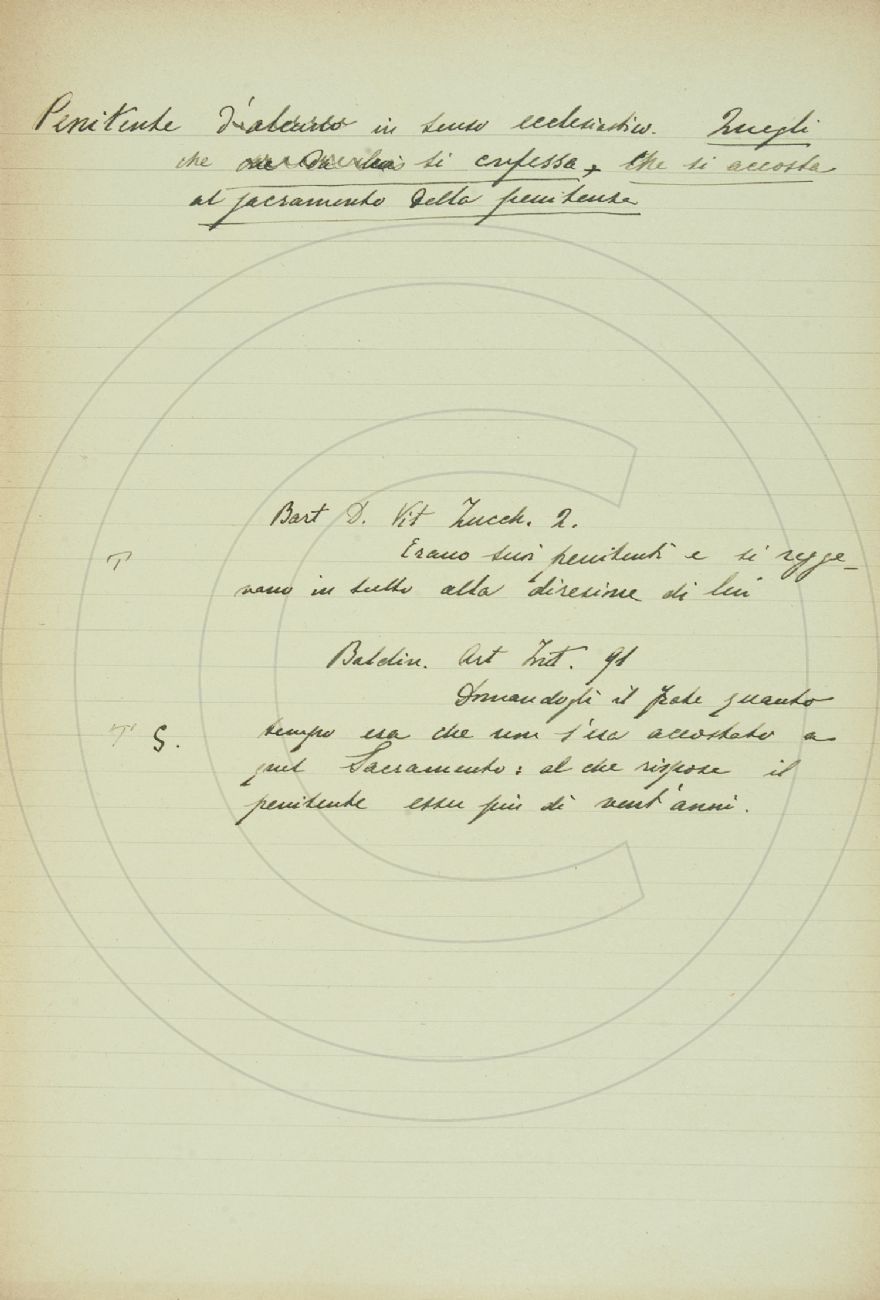 Penitente d'alcuno in senso ecclesiastico. Quegli
che si confessa, che si accosta
al sacramento della penitenza
Bart D. Vit Zucch. 2.
T Erano suoi penitenti e si regge-
vano in tutto alla direzione di lui
Baldin. Art Int. 91
Domandogli il frate quanto
T S. tempo era che non s'era accostato a
quel Sacramento: al che rispose il
penitente esser più di vent'anni.